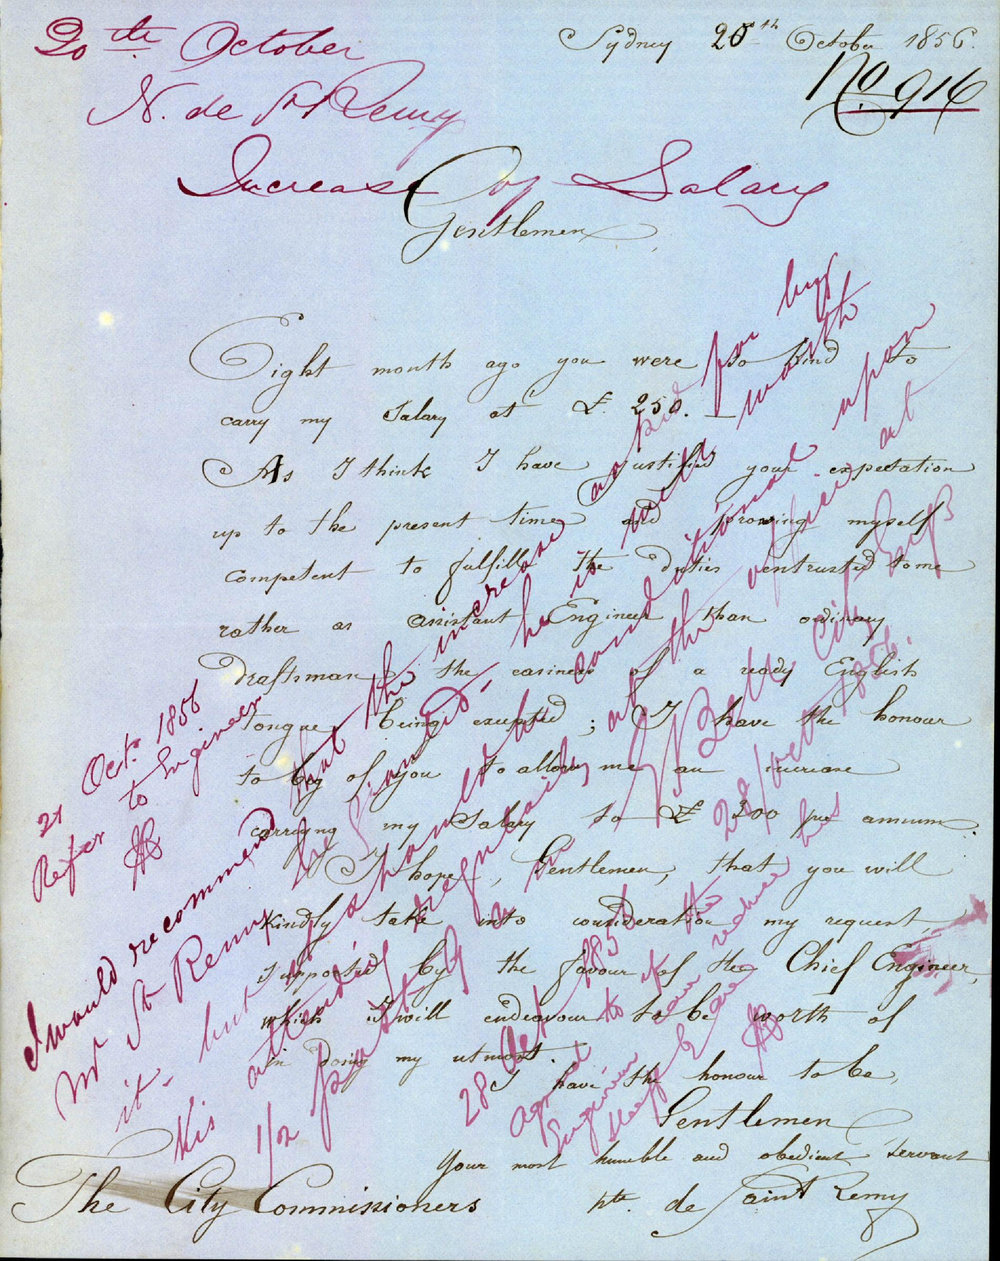 20th October
N. de St Remy
Increase of Salary
Sydney 20th October 1856.
No. 916
Gentlemen,
Eight month ago you were so kind to
carry my Salary at £ 250.
As I think I have justified your expectation
up to the present time and proving myself
competent to fulfill the duties entrusted to me
rather as assistant Engineer than ordinary
draftsman, the easiness of a ready English
tongue being excepted; I have the honour
to beg of you to allow me an increase
carryng my Salary to £ 300 per annum.
I hope, Gentlemen, that you will
kindly take into consideration my request,
supported by the favour of the Chief Engineer,
which I will endeavour to be worth of
in doing my utmost.
I have the honour to be,
Gentlemen
Your most humble and obedient Servant
pte. de Saint Remy
The City Commissioners
21 Oct. 1856
Refer to Engineer
I would recommend that the increase as put for by
Mr St Remy be granted, he is well worth
it - but it should be conditional upon
his attending regularly at the office at
1/2 past 9
Bell City Engr
28/Oct 1856.
28 Oct 1856
Engineer